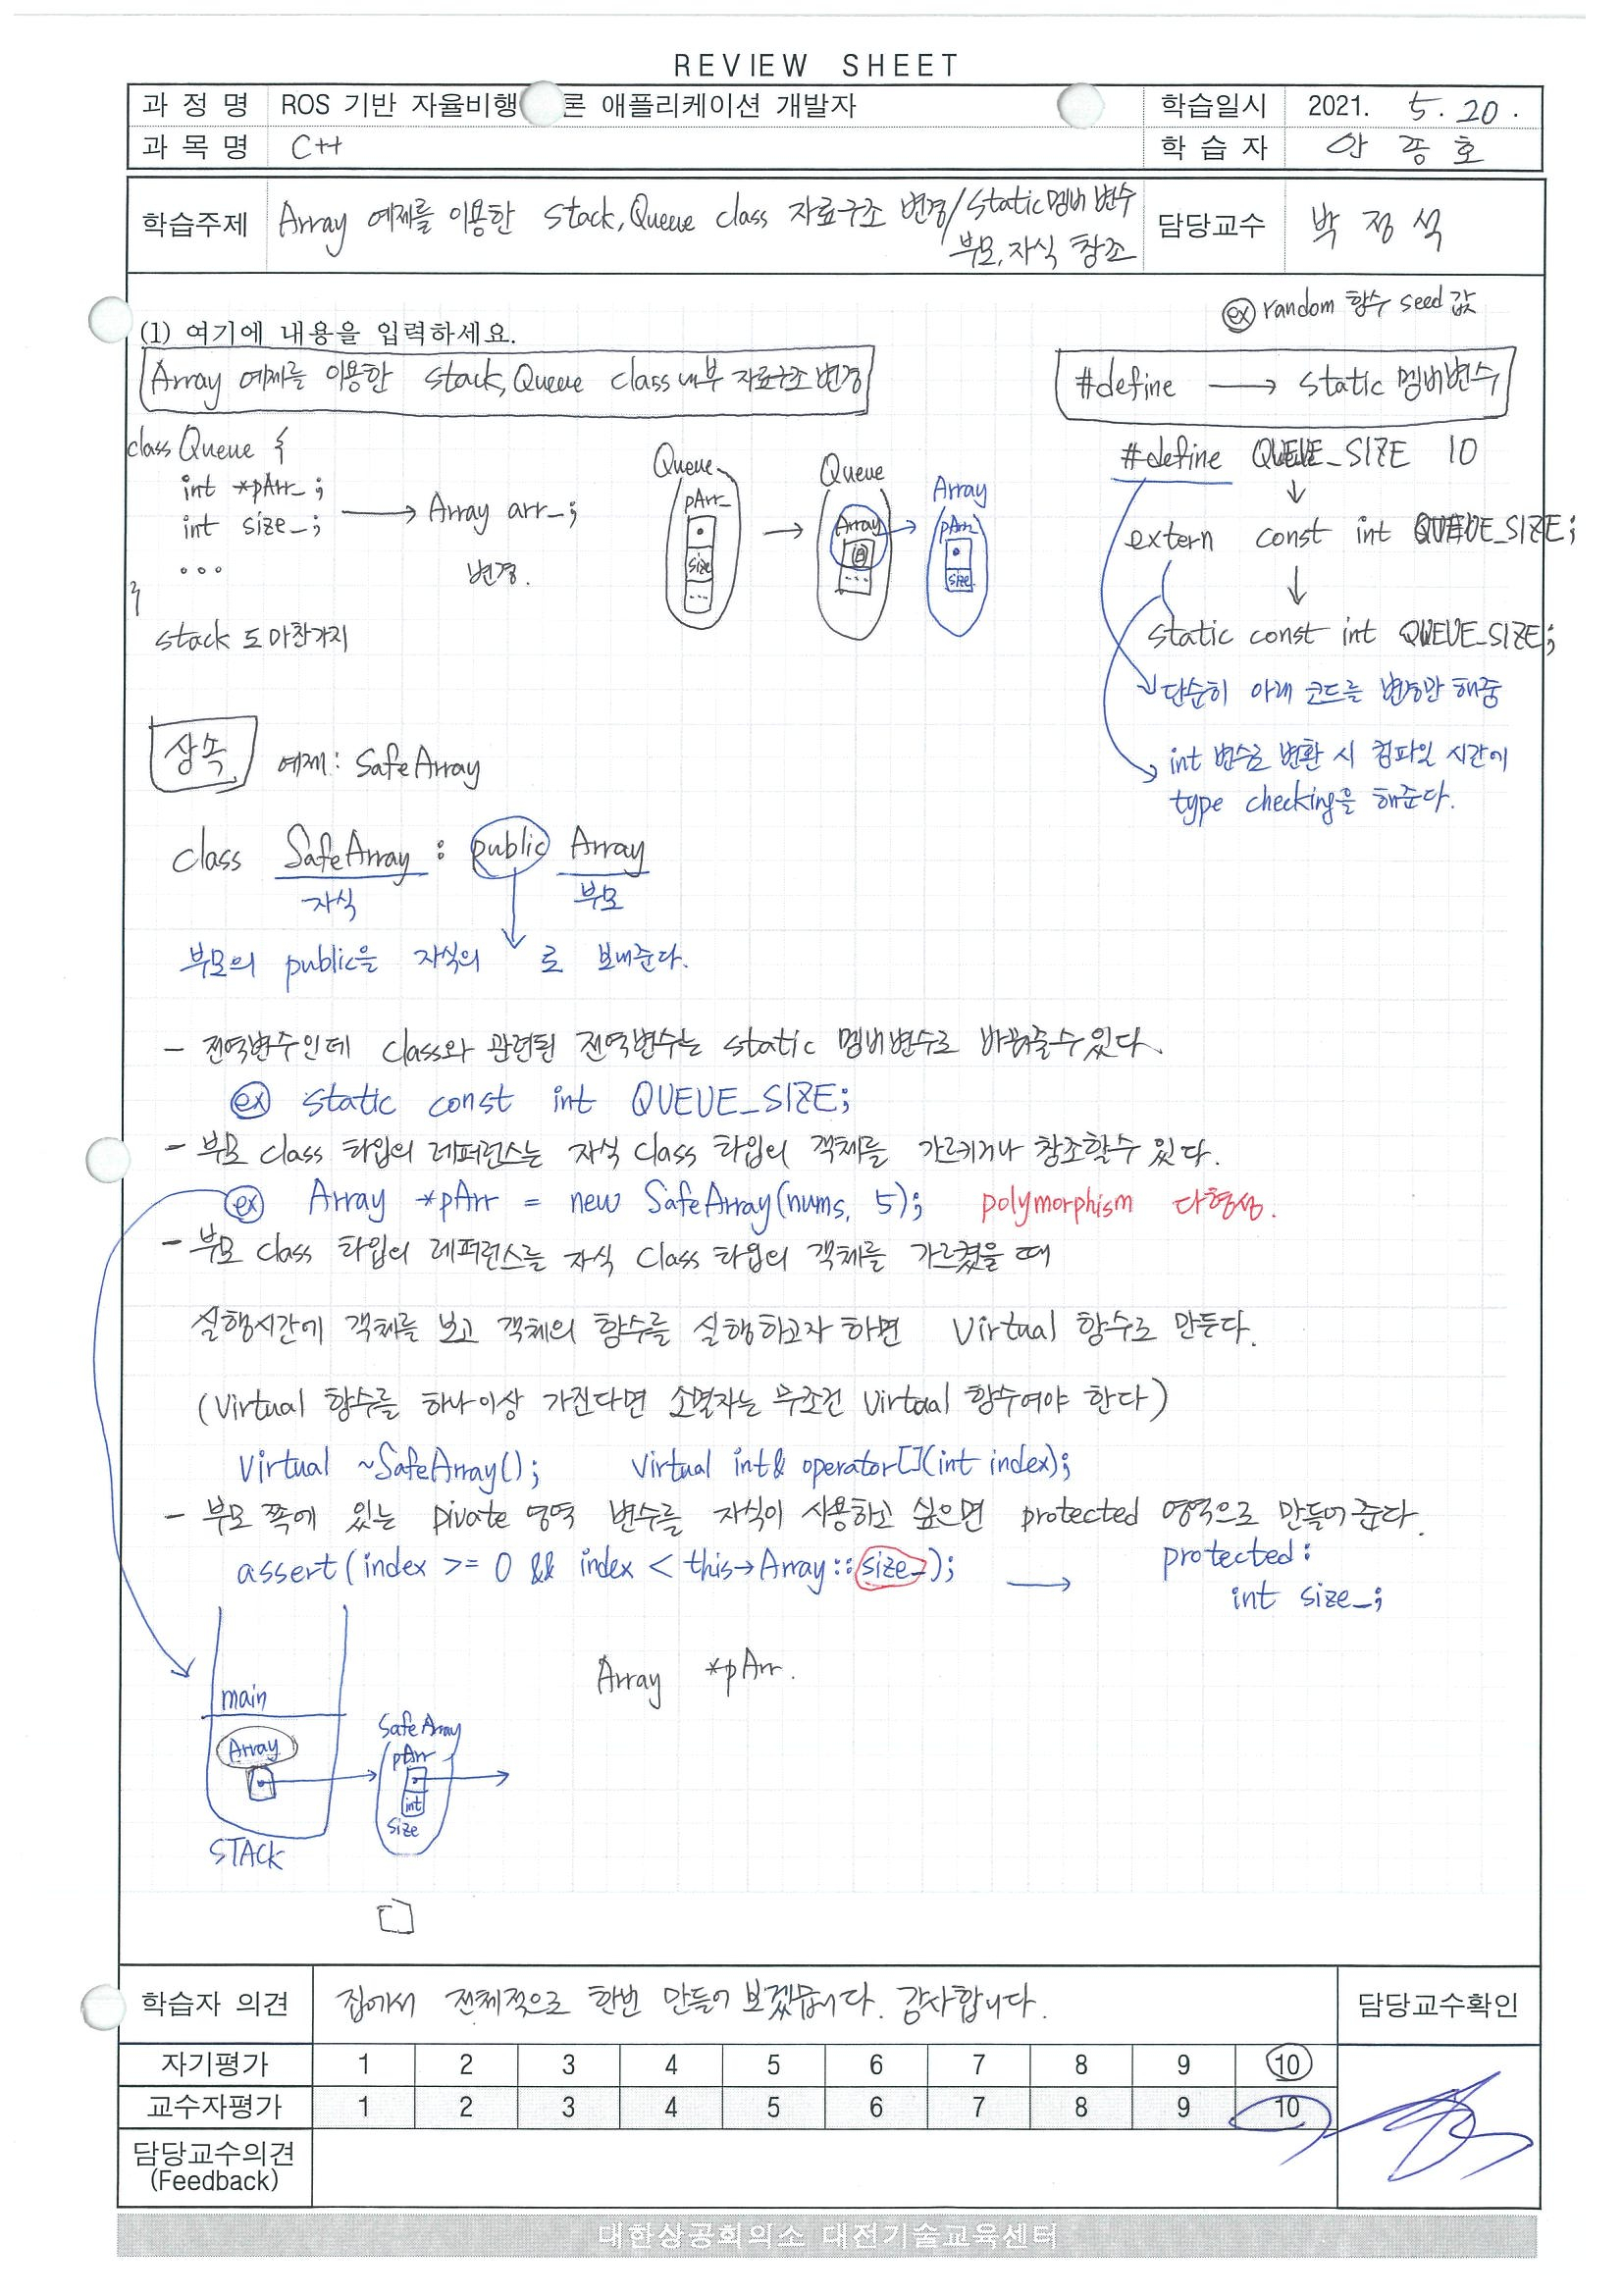 REVIEW SHEET
과 정 명 ROS 기반 자율비행 론 애플리케이션 개발자 학습일시 2021. 5. 20.
과 목 명 C++ 학 습 자 안 종 호
학습주제 Array 예제를 이용한 Stack, Queue class 자료구조 변경/Static 멤버 변수
부모, 자식 창조
담당교수 박 정 석
ex random 함수 seed 값
(1) 여기에 내용을 입력하세요.
Array 예제를 이용한 Stack, Queue class 내부 자료구조 변경
#define → static 멤버변수
class Queue {
int *pArr_;
int size_;
...
}
→ Array arr_;
변경.
stack 도 마찬가지
Queue
pArr_
size
...
→
Queue
Array
...
Array
pArr
size
#define QUEUE_SIZE 10
↓
extern const int QUEUE_SIZE;
↓
static const int QUEUE_SIZE;
단순히 아래 코드를 변경만 해줌
int 변수로 변환 시 컴파일 시간에
type checking을 해준다.
상속 예제: SafeArray
class SafeArray : public Array
자식 부모
부모의 public을 자식의 로 보내준다.
- 전역변수인데 class와 관련된 전역변수는 static 멤버변수로 바꿔줄수있다.
ex static const int QUEUE_SIZE;
- 부모 class 타입의 레퍼런스는 자식 class 타입의 객체를 가르키거나 창조할수 있다.
ex Array *pArr = new SafeArray(nums, 5); polymorphism 다형성.
- 부모 class 타입의 레퍼런스를 자식 class 타입의 객체를 가르켰을 때
실행시간에 객체를 보고 객체의 함수를 실행하고자 하면 Virtual 함수로 만든다.
(Virtual 함수를 하나이상 가진다면 소멸자는 무조건 Virtual 함수여야 한다)
Virtual ~SafeArray(); Virtual int& operator[](int index);
- 부모 쪽에 있는 pivate 영역 변수를 자식이 사용하고 싶으면 protected 영역으로 만들어 준다.
assert(index >= 0 && index < this→Array::size_); → protected:
int size_;
Array *pArr.
main
Array
STACK
SafeArray
pArr
int
size
학습자 의견 집에서 전체적으로 한번 만들어 보겠습니다. 감사합니다. 담당교수확인
자기평가 1 2 3 4 5 6 7 8 9 10
교수자평가 1 2 3 4 5 6 7 8 9 10
담당교수의견
(Feedback)
대한상공회의소 대전기술교육센터